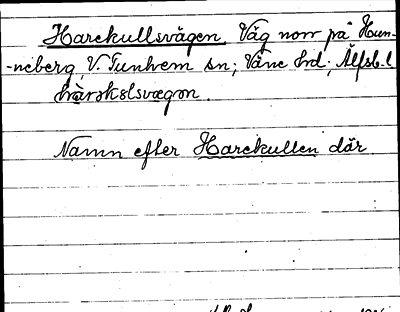 Harekullsvägen Väg norr på Hun-
-neberg, V. Tunhem sn; Väne hd; Älfsb. l

Namn efter Harekullen där